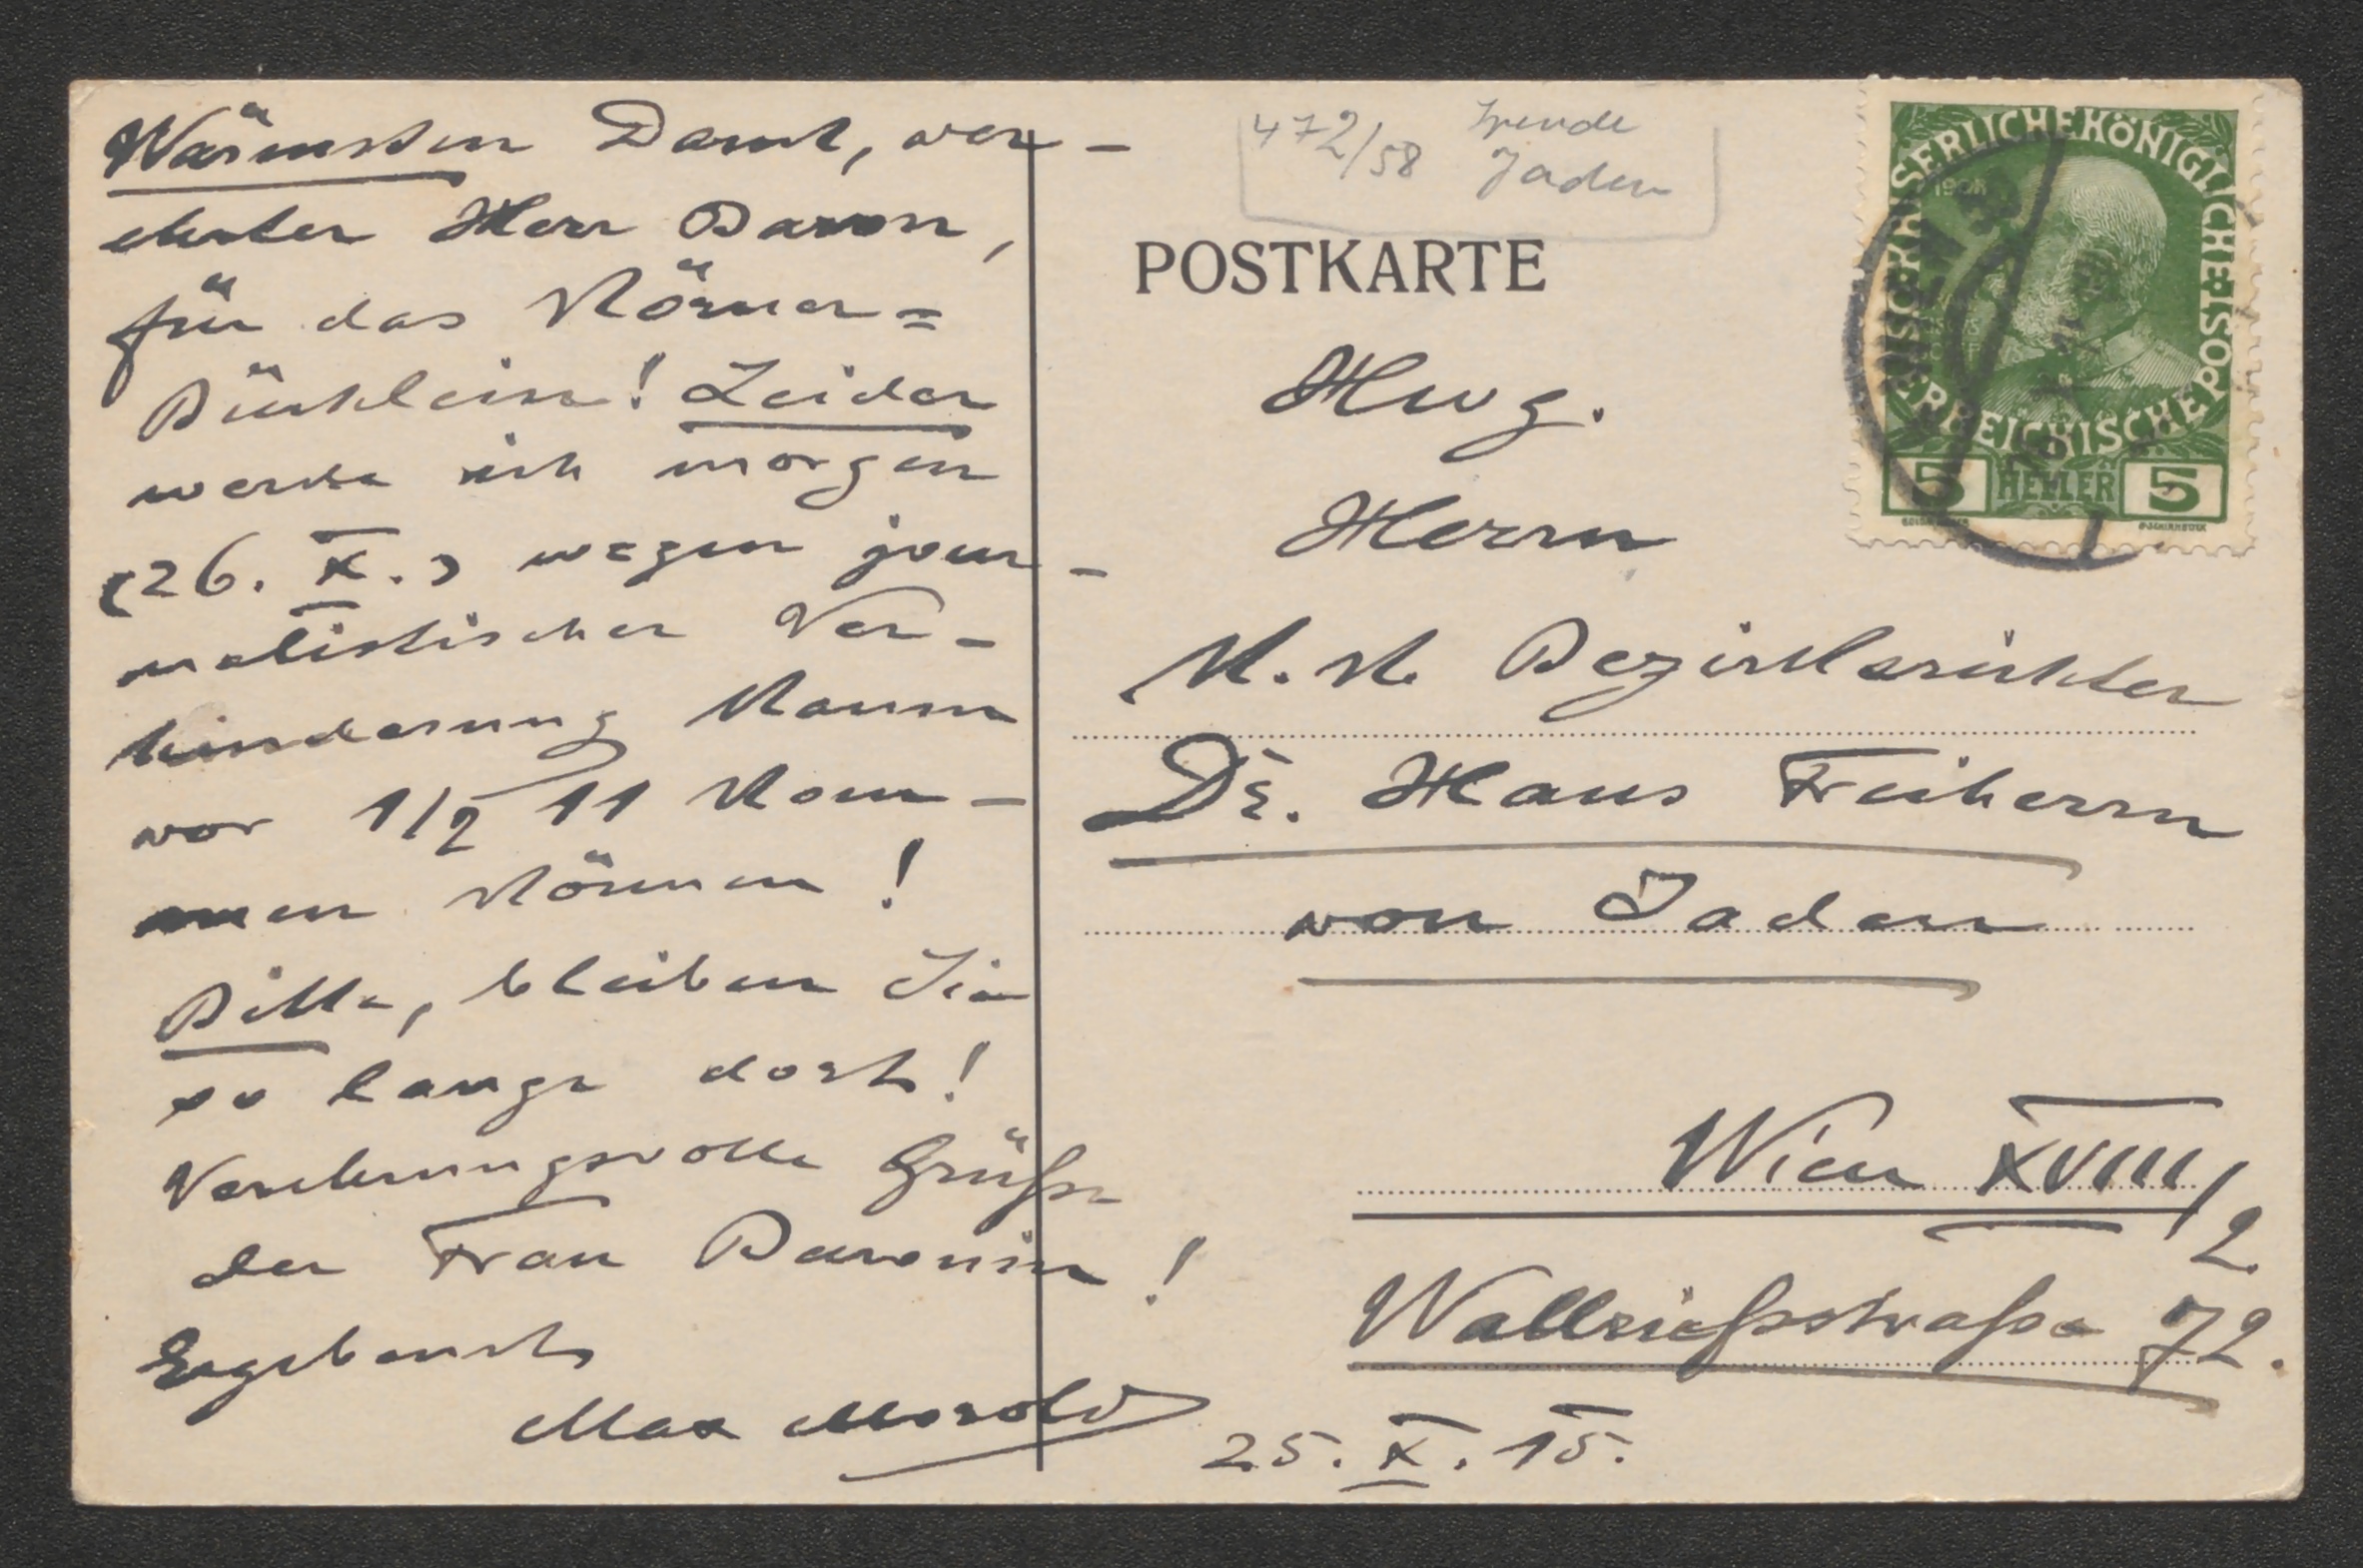 Wärmsten Dank, ver-
ehrter Herr Baron,
für das Körner=
Büchlein! Leider
werde ich morgen
(26. X.) wegen jour-
nalistischer Ver-
hinderung kaum
vor 1/2 11 kom-
men können!
Bitte, bleiben Sie
so lange dort!
Verehrungsvolle Grüße
der Frau Baronin!
Ergebenst
Max Morold
472/58 Spende
Jaden
POSTKARTE
Hwg.
Herrn
K. K. Bezirksrichter
Dr. Hans Freiherrn
von Jaden
Wien XVIII/2.
Wallrißstraße 72.
25. X. 15.
KAISERLICHE KÖNIGLICHE ÖSTERREICHISCHE POST
1908
5 HELLER 5